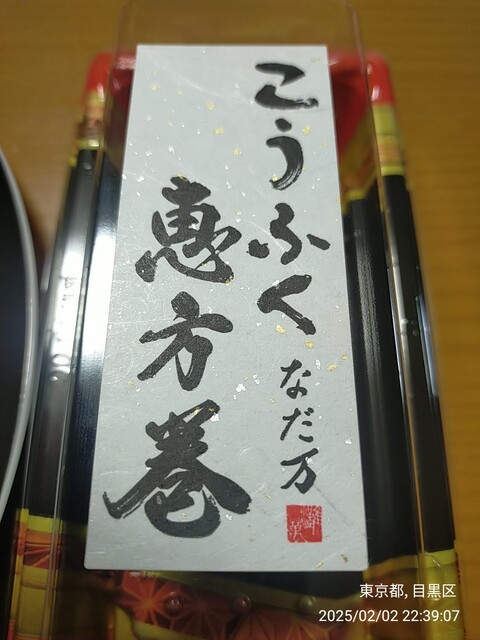 こうふく
恵方巻
なだ万
東京都, 目黒区
2025/02/02 22:39:07